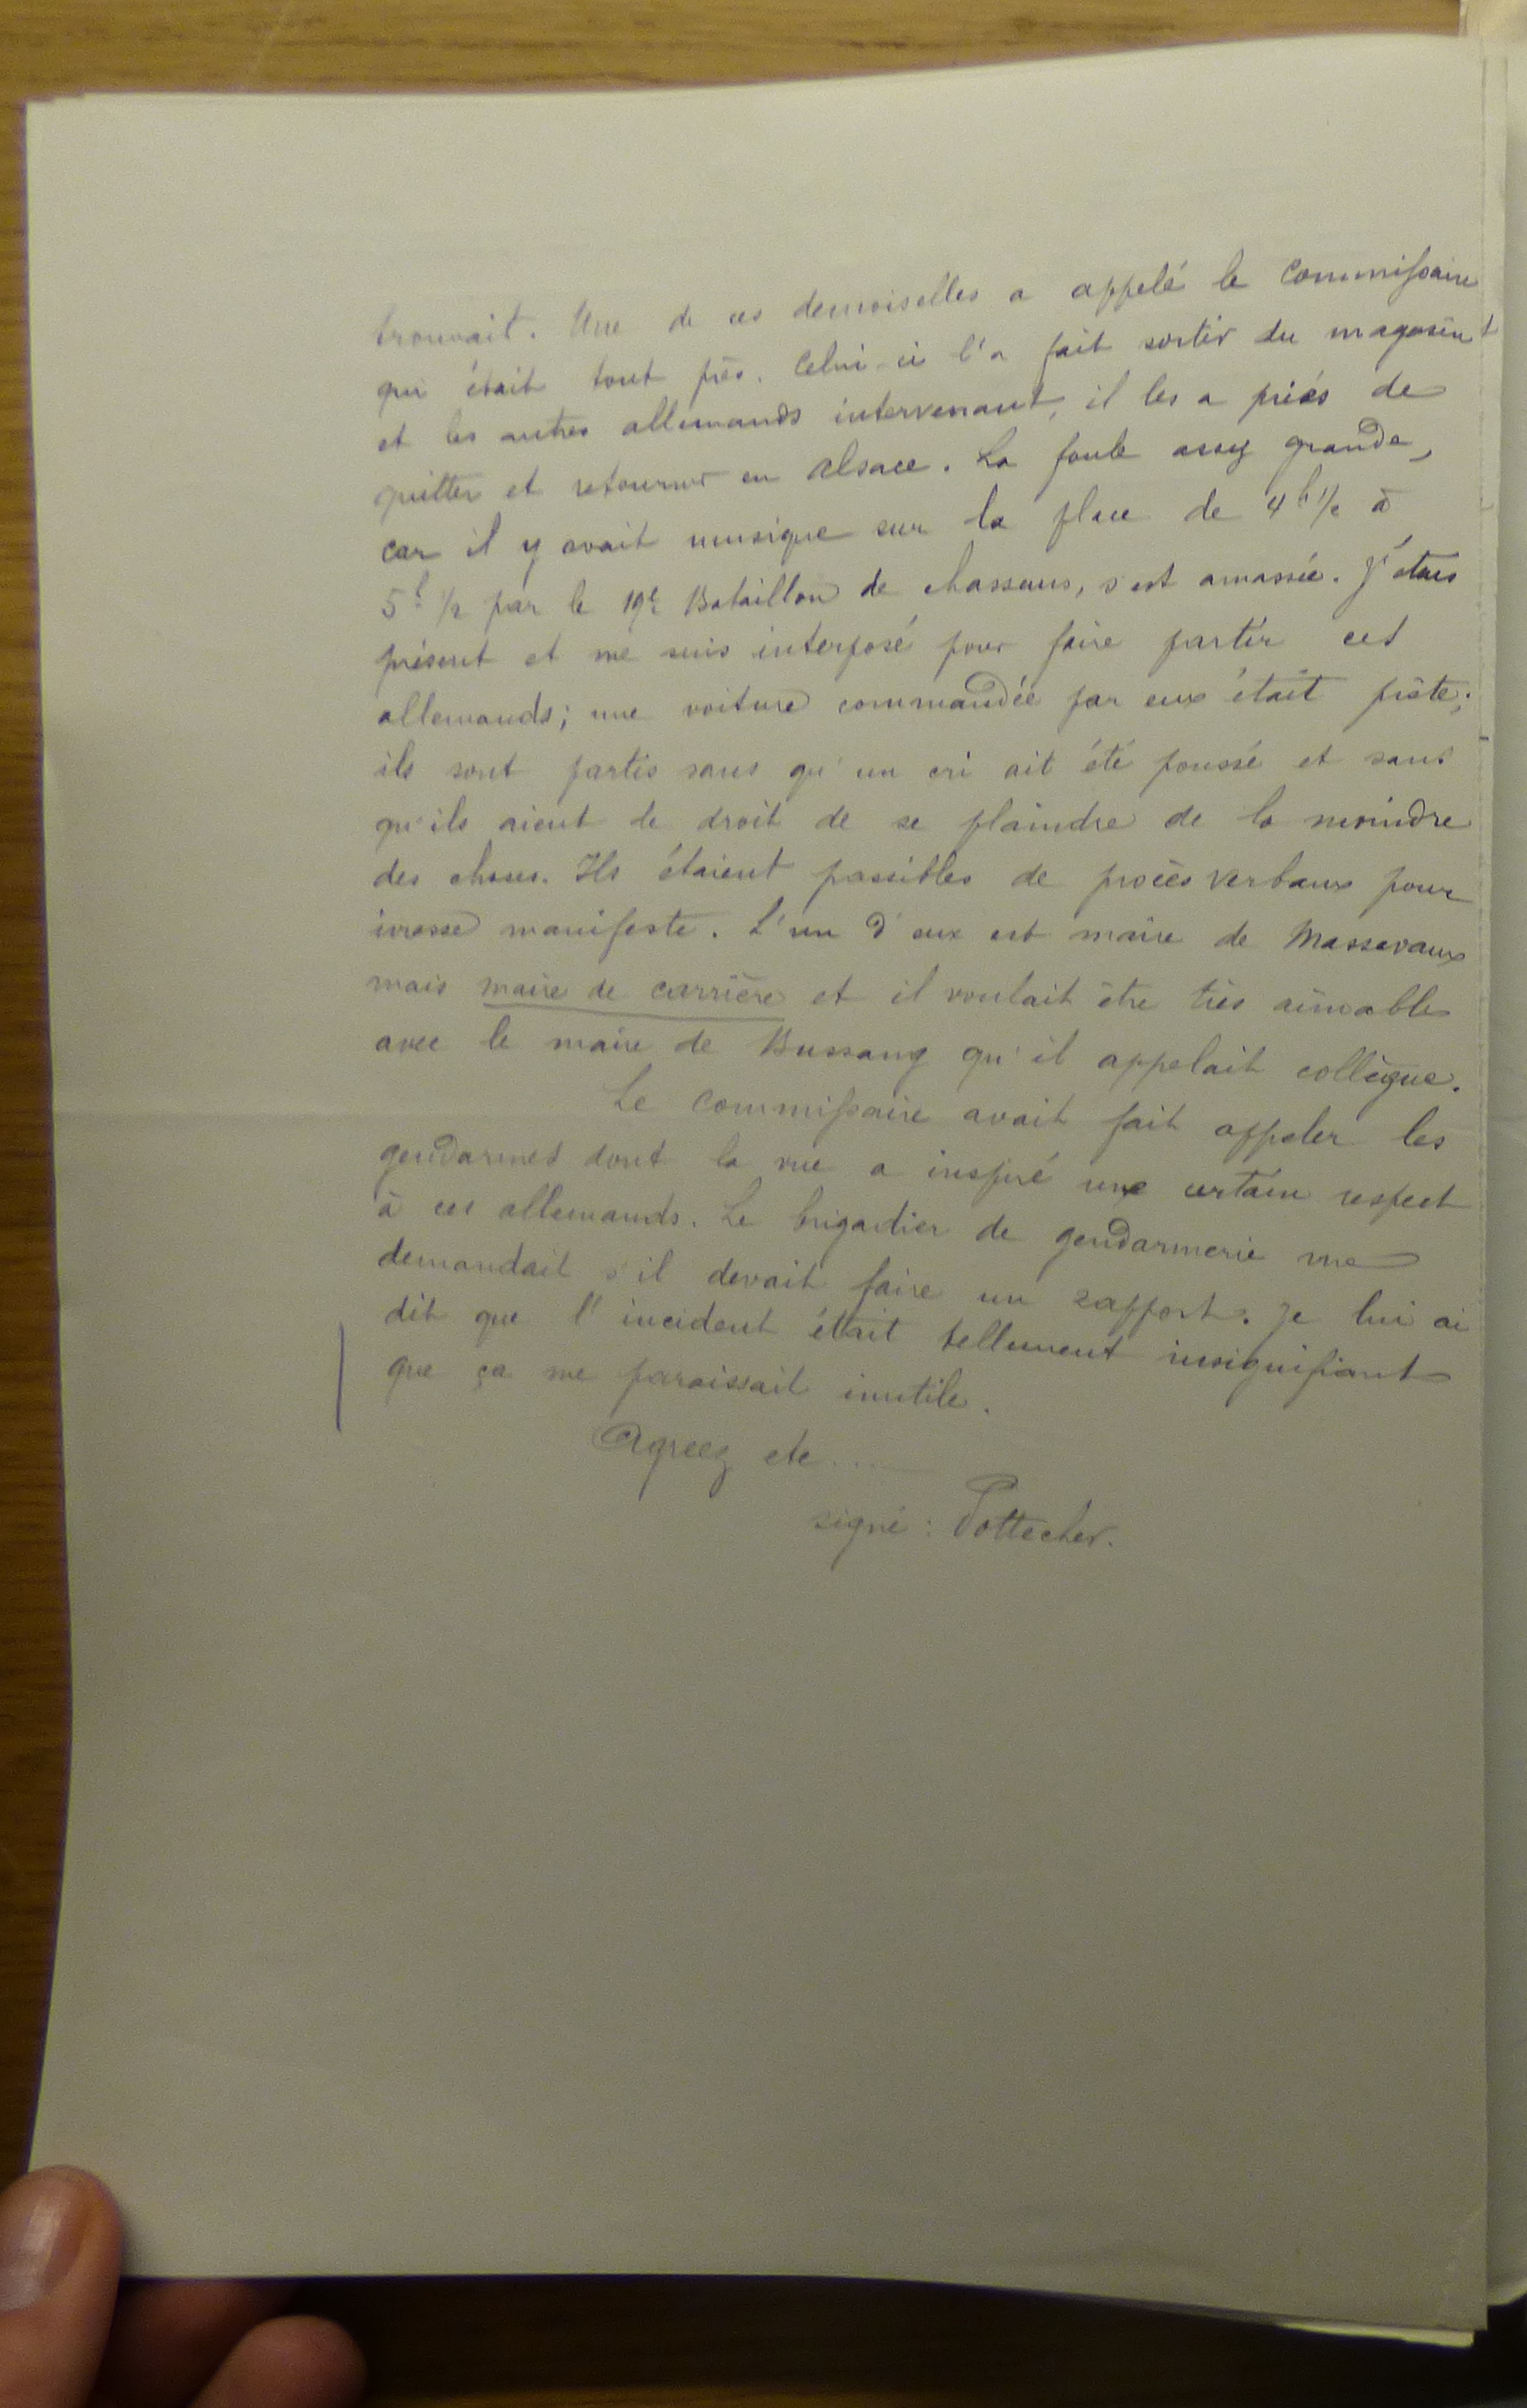 trouvait. Une de ces demoiselles a appelé le Commissaire
qui était tout près. Celui-ci l'a fait sortir du magasin
et les autres allemands intervenant, il les a priés de
quitter et retourner en Alsace. La foule assez grande,
car il y avait musique sur la place de 4h 1/2 à
5h 1/2 par le 19e Bataillon de chasseurs, s'est amassée. J'étais
présent et me suis interposé pour faire partir ces
allemands; une voiture commandée par eux était prête;
ils sont partis sans qu'un cri ait été poussé et sans
qu'ils aient le droit de se plaindre de la moindre
des choses. Ils étaient passibles de procès verbaux pour
ivresse manifeste. L'un d'eux est maire de Massevaux
mais maire de carrière et il voulait être très aimable
avec le maire de Bussang qu'il appelait collègue.
Le Commissaire avait fait appeler les
gendarmes dont la vue a inspiré une certain respect
à ces allemands. Le brigadier de gendarmerie me
demandait s'il devait faire un rapport. Je lui ai
dit que l'incident était tellement insignifiant
que ça me paraissait inutile.
Agréez etc....
signé : Pottecher.